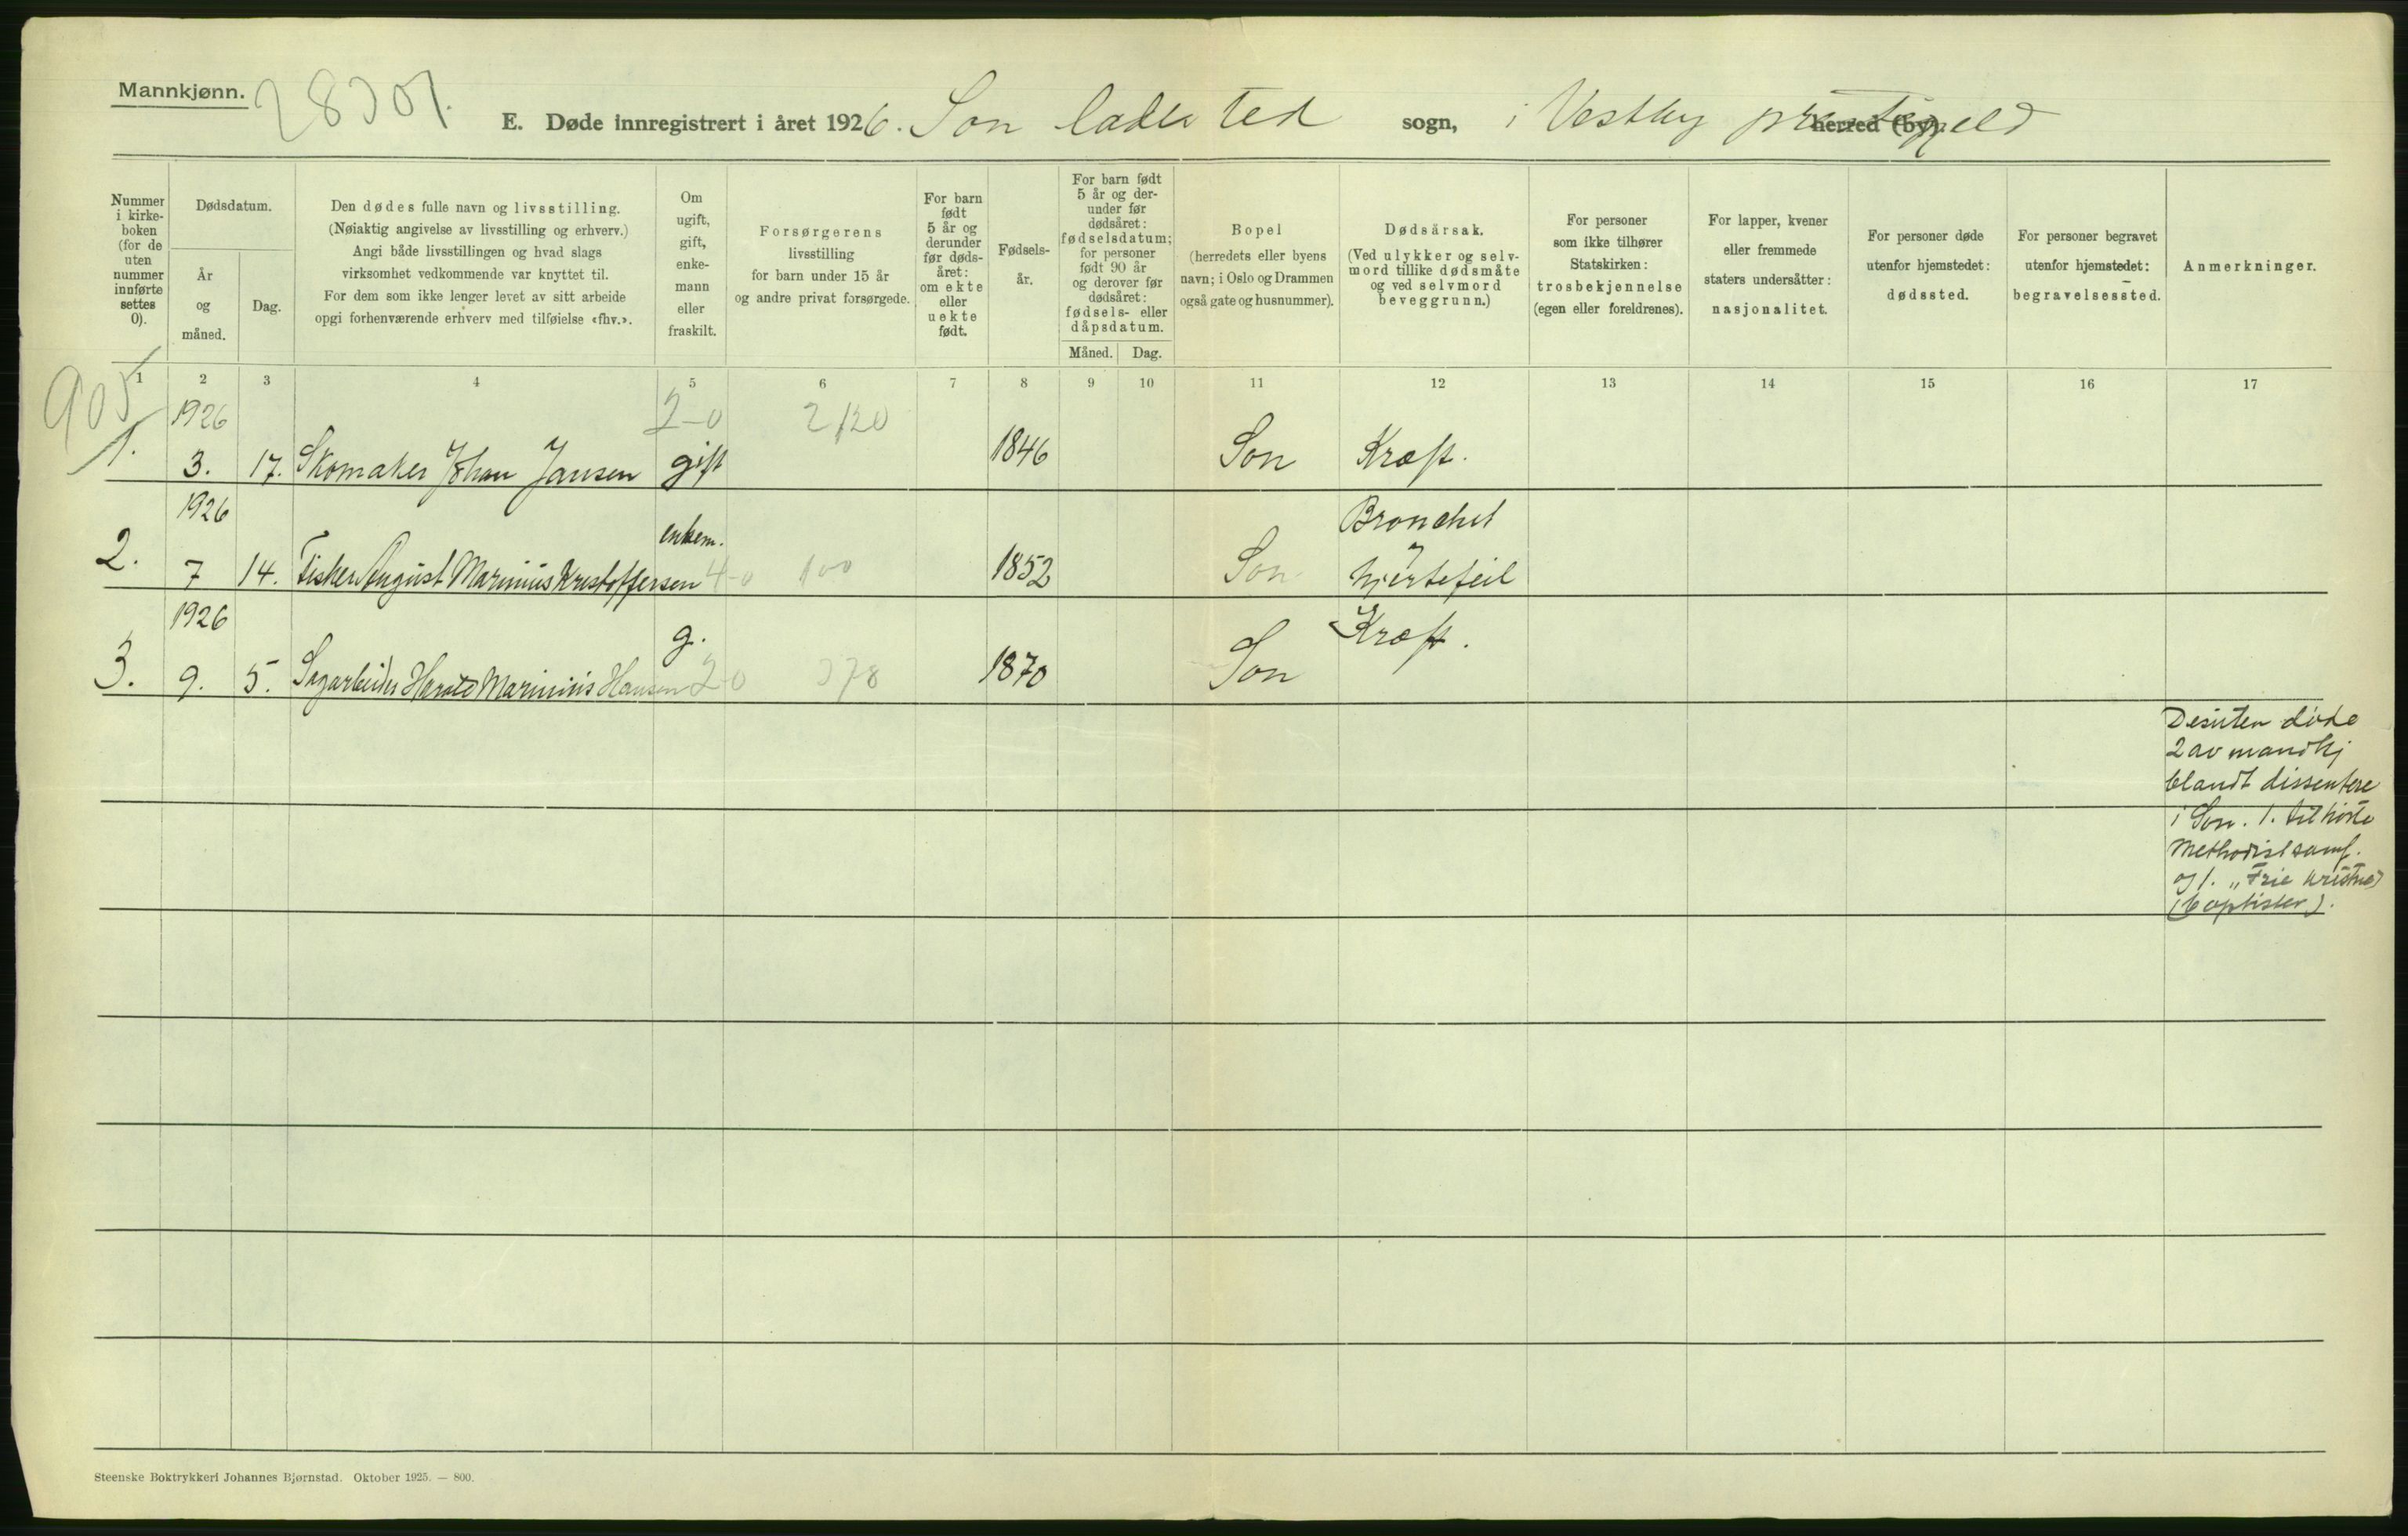 Mannkjønn.
E. Døde innregistrert i året 1926. Son ladested sogn, i Vestby prestegjeld herred (by).
Nummer i kirke- boken (for de uten nummer innførte settes 0).
Dødsdatum.
År og måned.
Dag.
Den dødes fulle navn og livsstilling.
(Nøiaktig angivelse av livsstilling og erhverv.)
Angi både livsstillingen og hvad slags
virksomhet vedkommende var knyttet til.
For dem som ikke lenger levet av sitt arbeide
opgi forhenværende erhverv med tilføielse «fhv.».
Om ugift, gift, enke- mann eller fraskilt.
Forsørgerens
livsstilling
for barn under 15 år
og andre privat forsørgede.
For barn født 5 år og derunder før døds- året: om ekte eller uekte født.
Fødsels- år.
For barn født 5 år og der- under før dødsåret: fødselsdatum; for personer født 90 år og derover før dødsåret: fødsels- eller dåpsdatum.
Måned. Dag.
Bopel
(herredets eller byens
navn; i Oslo og Drammen
også gate og husnummer).
Dødsårsak.
(Ved ulykker og selv-
mord tillike dødsmåte
og ved selvmord
beveggrunn.)
For personer
som ikke tilhører
Statskirken:
trosbekjennelse
(egen eller foreldrenes).
For lapper, kvener
eller fremmede
staters undersåtter:
nasjonalitet.
For personer døde
utenfor hjemstedet:
dødssted.
For personer begravet
utenfor hjemstedet:
begravelsessted.
Anmerkninger.
1 2 3 4 5 6 7 8 9 10 11 12 13 14 15 16 17
905
1926 2-0 2120
1. 3. 17. Skomaker Johan Jansen gift 1846 Son Kræft.
1926 enkem. Bronchit
2. 7 14. Fisker August Marinius Kristoffersen 4-0 100 1852 Son hjertefeil
1926 g. Kræft.
3. 9. 5. Sagarbeider Harald Marinius Hansen 2-0 378 1870 Son
Desuten døde
2 av mandkj
blandt dissentere
i Son. 1. tilhørte
Methodistsamf.
og 1. „Frie kristne"
(baptister).
Steenske Boktrykkeri Johannes Bjørnstad. Oktober 1925. — 800.